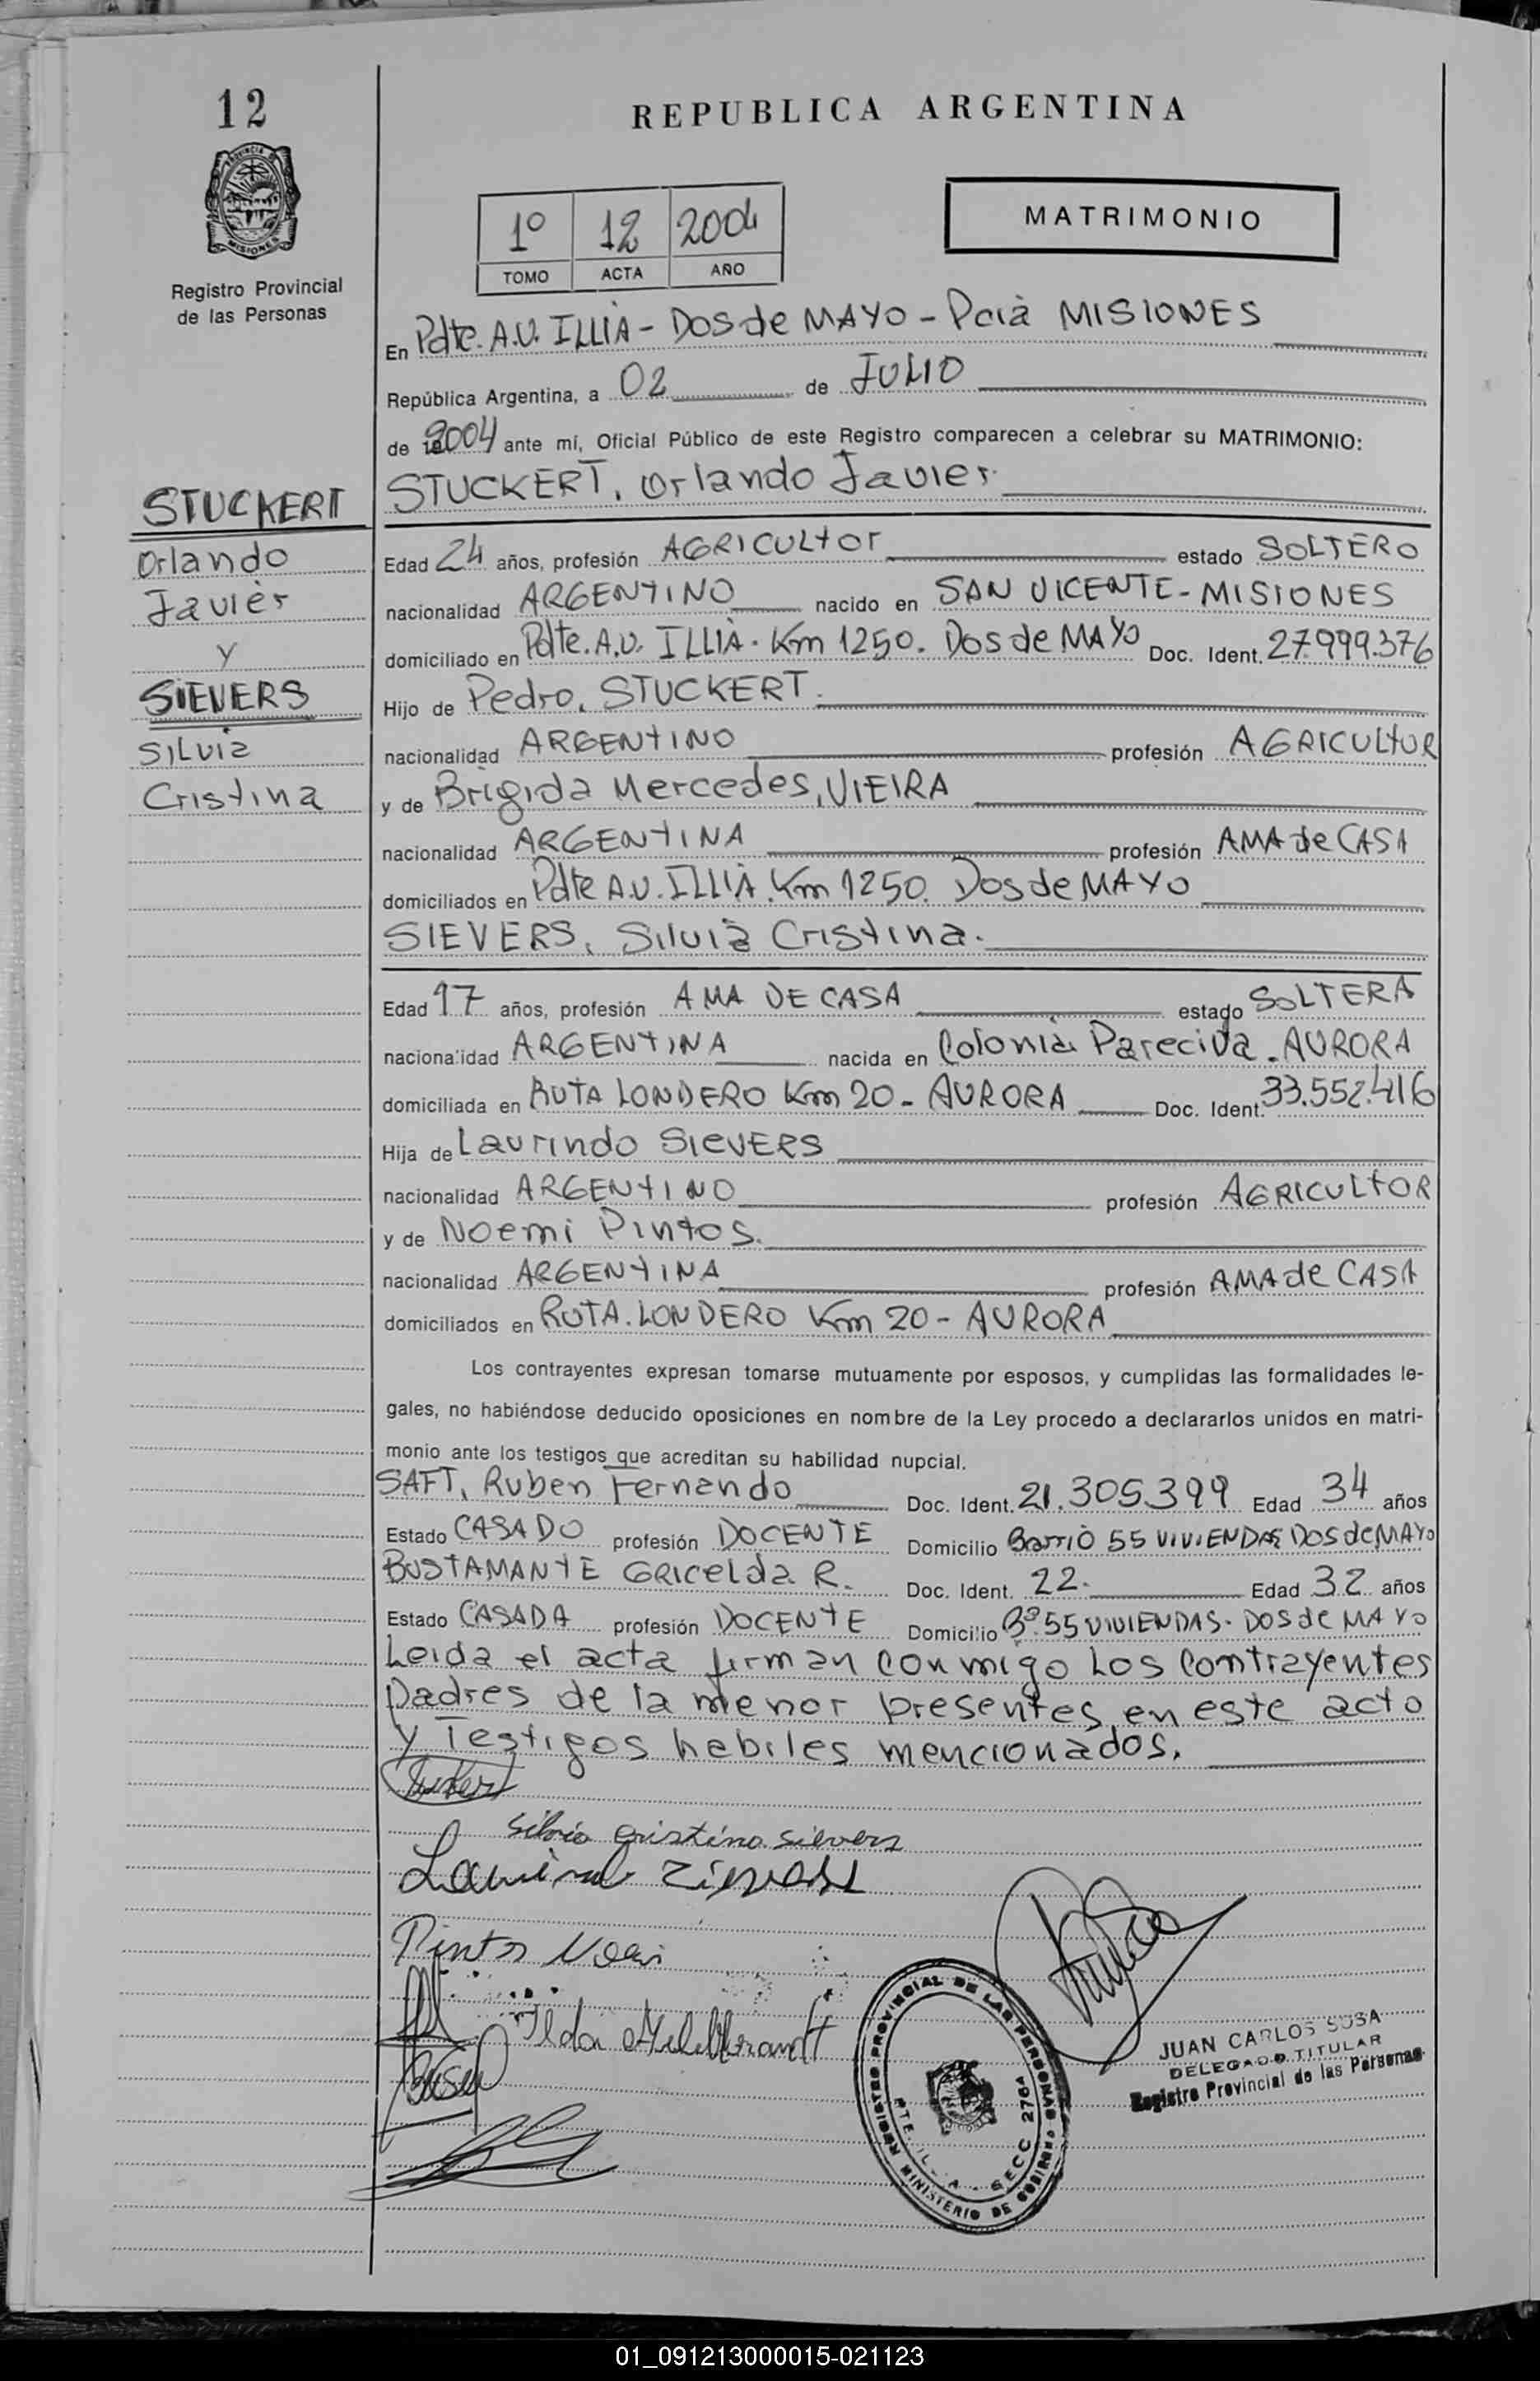 12
REPUBLICA ARGENTINA
PROVINCIA DE
MISIONES
Registro Provincial
de las Personas
1º 12 2004
TOMO ACTA AÑO
MATRIMONIO
En Pdte. A.U. ILLIA - DOS de MAYO - Pcia MISIONES
República Argentina, a 02 de JULIO
de 2004 ante mí, Oficial Público de este Registro comparecen a celebrar su MATRIMONIO:
STUCKERT, Orlando Javier.
STUCKERT
Orlando
Javier
y
SIEVERS
SILVIA
Cristina
Edad 24 años, profesión AGRICULtOr estado SOLTERO
nacionalidad ARGENtINO nacido en SAN VICENTE - MISIONES
domiciliado en Pdte. A.U. ILLIA. Km 1250. Dos de MAYO Doc. Ident. 27.999.376
Hijo de Pedro, STUCKERT.
nacionalidad ARGENtINO profesión AGRICULtOR
y de Brigida Mercedes, VIEIRA
nacionalidad ARGENtINA profesión AMA de CASA
domiciliados en Pdte A.U. ILLIA. Km 1250. Dos de MAYO
SIEVERS, Silvia Cristina.
Edad 17 años, profesión AMA DE CASA estado SOLTERA
nacionalidad ARGENtINA nacida en Colonia Parecida - AURORA
domiciliada en RUTA LONDERO Km 20 - AURORA Doc. Ident. 33.552.416
Hija de Laurindo SIEVERS
nacionalidad ARGENtINO profesión AGRICULtOR
y de Noemi Pintos.
nacionalidad ARGENtINA profesión AMA de CASA
domiciliados en RUTA. LONDERO Km 20 - AURORA
Los contrayentes expresan tomarse mutuamente por esposos, y cumplidas las formalidades le-
gales, no habiéndose deducido oposiciones en nombre de la Ley procedo a declararlos unidos en matri-
monio ante los testigos que acreditan su habilidad nupcial.
SAFT, Ruben Fernando Doc. Ident. 21.305.399 Edad 34 años
Estado CASADO profesión DOCENTE Domicilio Barrio 55 VIVIENDAS DOS de MAYO
BUSTAMANTE Gricelda R. Doc. Ident. 22. Edad 32 años
Estado CASADA profesión DOCENTE Domicilio Bº 55 VIVIENDAS - DOS de MAYO
Leida el acta firman conmigo Los Contrayentes
padres de la menor presentes en este acto
y Testigos habiles mencionados.
Silvia Cristina Sievers
Pintos Noemi
Ilda Hildebrandt
REGISTRO PROVINCIAL DE LAS PERSONAS
MINISTERIO DE GOBIERNO
SECC 2764
JUAN CARLOS SOSA
DELEGADO TITULAR
Registro Provincial de las Personas
01_091213000015-021123